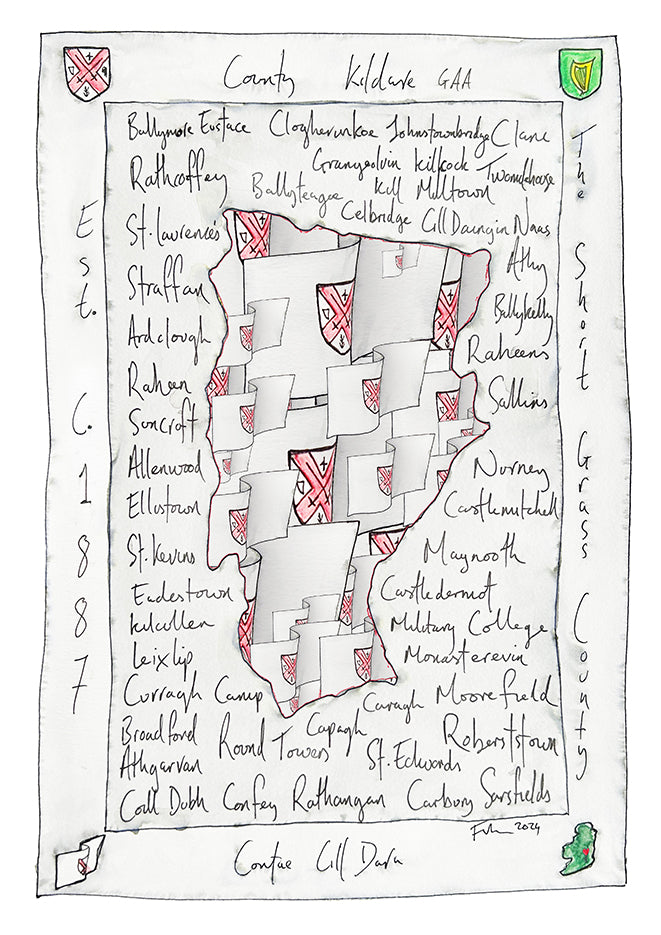 County Kildare GAA
Ballymore Eustace Clogherinkoe Johnstownbridge Clane
Rathcoffey Grangenolvin Kilcock Twomilehouse
Ballyteague Kill Milltown
St. Lawrence's Celbridge Cill Daingin Naas
Straffan Athy
Ballykelly
Ardclough Raheens
Raheen Sallins
Suncroft
Allenwood Nurney
Ellistown Castlemitchell
St. Kevins Maynooth
Eadestown Castledermot
Kilcullen Military College
Leixlip Monasterevin
Curragh Camp Caragh Moorefield
Broadford Round Towers Cappagh Roberststown
Athgarvan St. Edwards
Coill Dubh Confey Rathangan Carbury Sarsfields
2024
Contae Cill Dara
Est. C. 1887
The Short Grass County